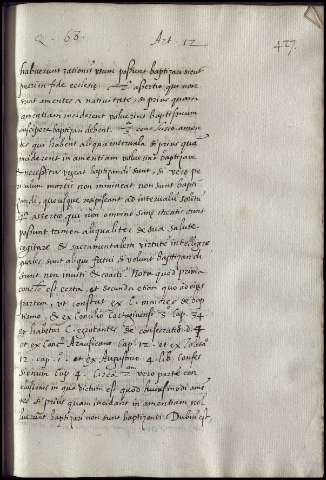 Q. 68. Art. 12 427.
habuerunt rationis usum possunt baptizari sicut
pueri in fide ecclesie. 2ª assertio qui non
sunt amentes a nativitate, si prius quam
amentiam inciderent voluerint baptismum
suscipere baptizari debent. 3ª conclusio amen
tes qui habent aliqua intervala si prius quam
inciderent in amentiam voluerint baptizari
necessitas urgeat baptizandi sunt, si vero pe
riculum mortis non immineat non sunt bapti
zandi, quousque respiscant ad intervali
4ª assertio qui non omnino sane mentis sunt
possunt tamen aliqualiter de sua salute
cogitare & sacramentalem virtutem intelligere
quales sunt aliqui fatui si volunt baptizandi
sunt non inviti & coacti. Nota quod prima
conc. est certa, et secunda etiam quo ad eius
partem, ut constat ex C. maiores de bap
tismo, & ex Concilio Cartaginensi 3 Cap. 34
et habetur C. egrotantes de consecratio. d. 4
et ex Conc. Arausicano Cap. 12. et ex
12. cap. et ex Augustino 4. lib. Confes
sionum Cap. 4. Circa 2am vero partem con
clusionis in qua dictum est quod huiusmodi amen
tes si prius quam incidant in amentiam nol
luerunt baptizari non sunt baptizandi. Dubium est